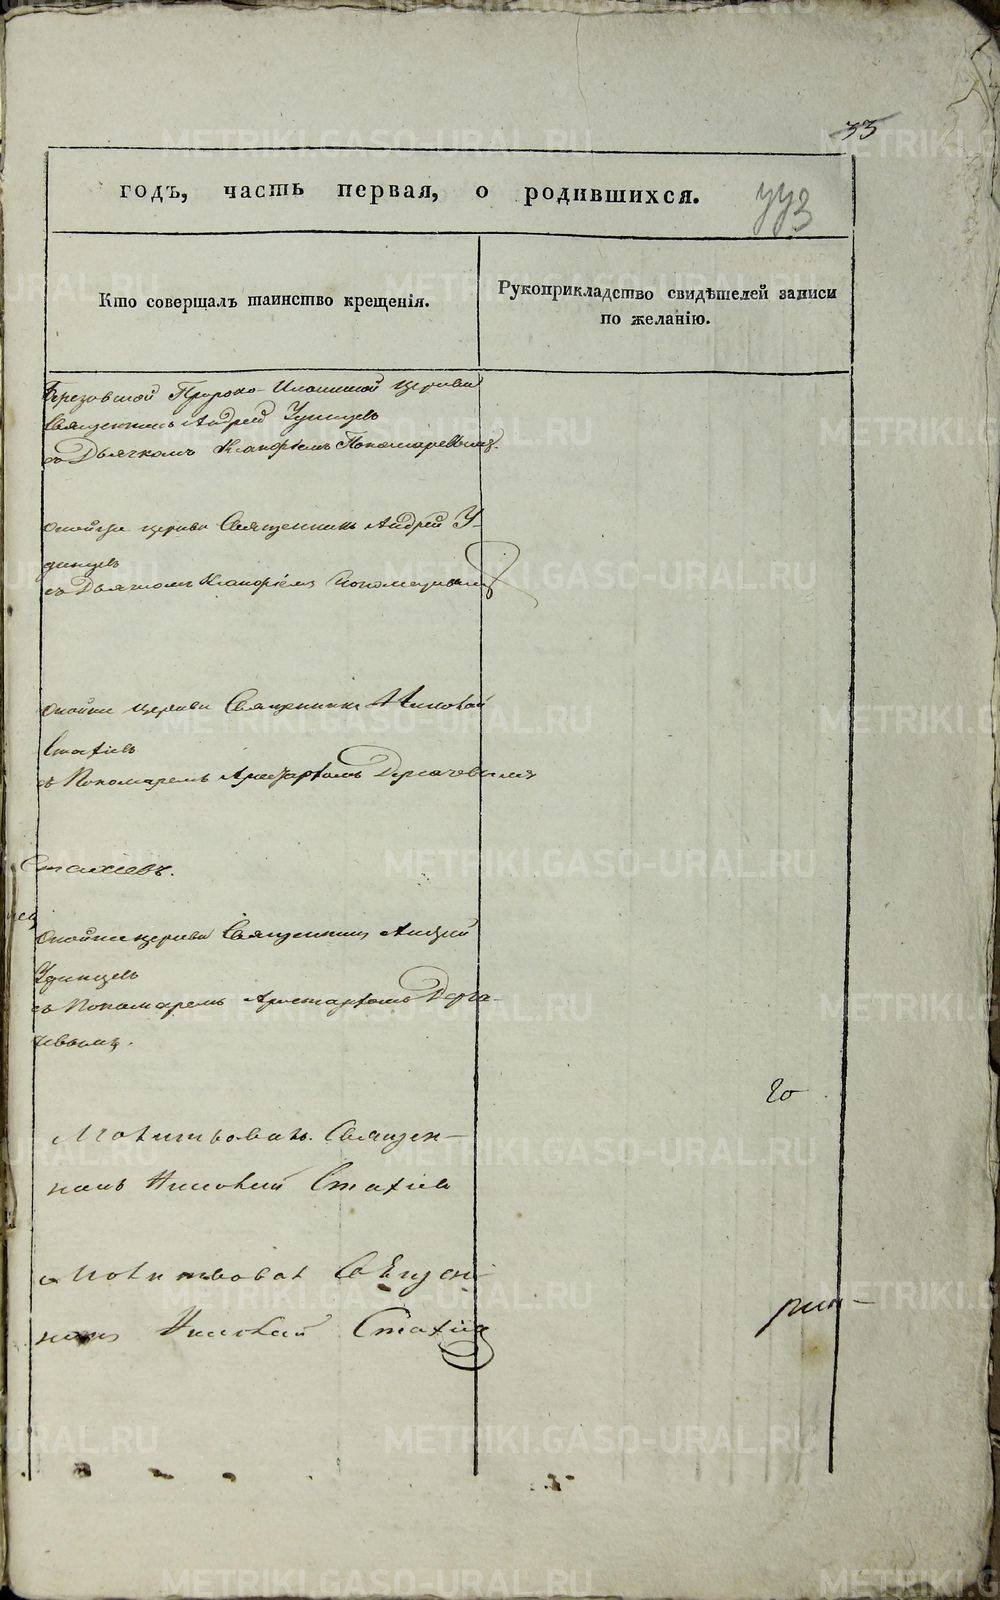 33
годъ, часть первая, о родившихся.
Кто совершалъ таинство крещенія.
Рукоприкладство свидѣтелей записи
по желанію.
Березовской Пророко-Ильинской церкви
Священникъ Андрей Удинцевъ
съ Дьячкомъ Пономаревымъ.
церкви Священникъ Андрей У-
динцевъ
съ Дьячкомъ Пономаревымъ
церкви Священникъ Николай
Стахіевъ
съ Пономаремъ Аристархомъ Дергачевымъ
Стахіевъ.
церкви Священникъ Андрей
Удинцевъ
съ Пономаремъ Аристархомъ Дерга-
чевымъ.
Молитвовалъ Священ-
никъ Николай Стахіевъ
Молитвовал Свѣщен-
никъ Николай Стахіев
METRIKI.GASO-URAL.RU